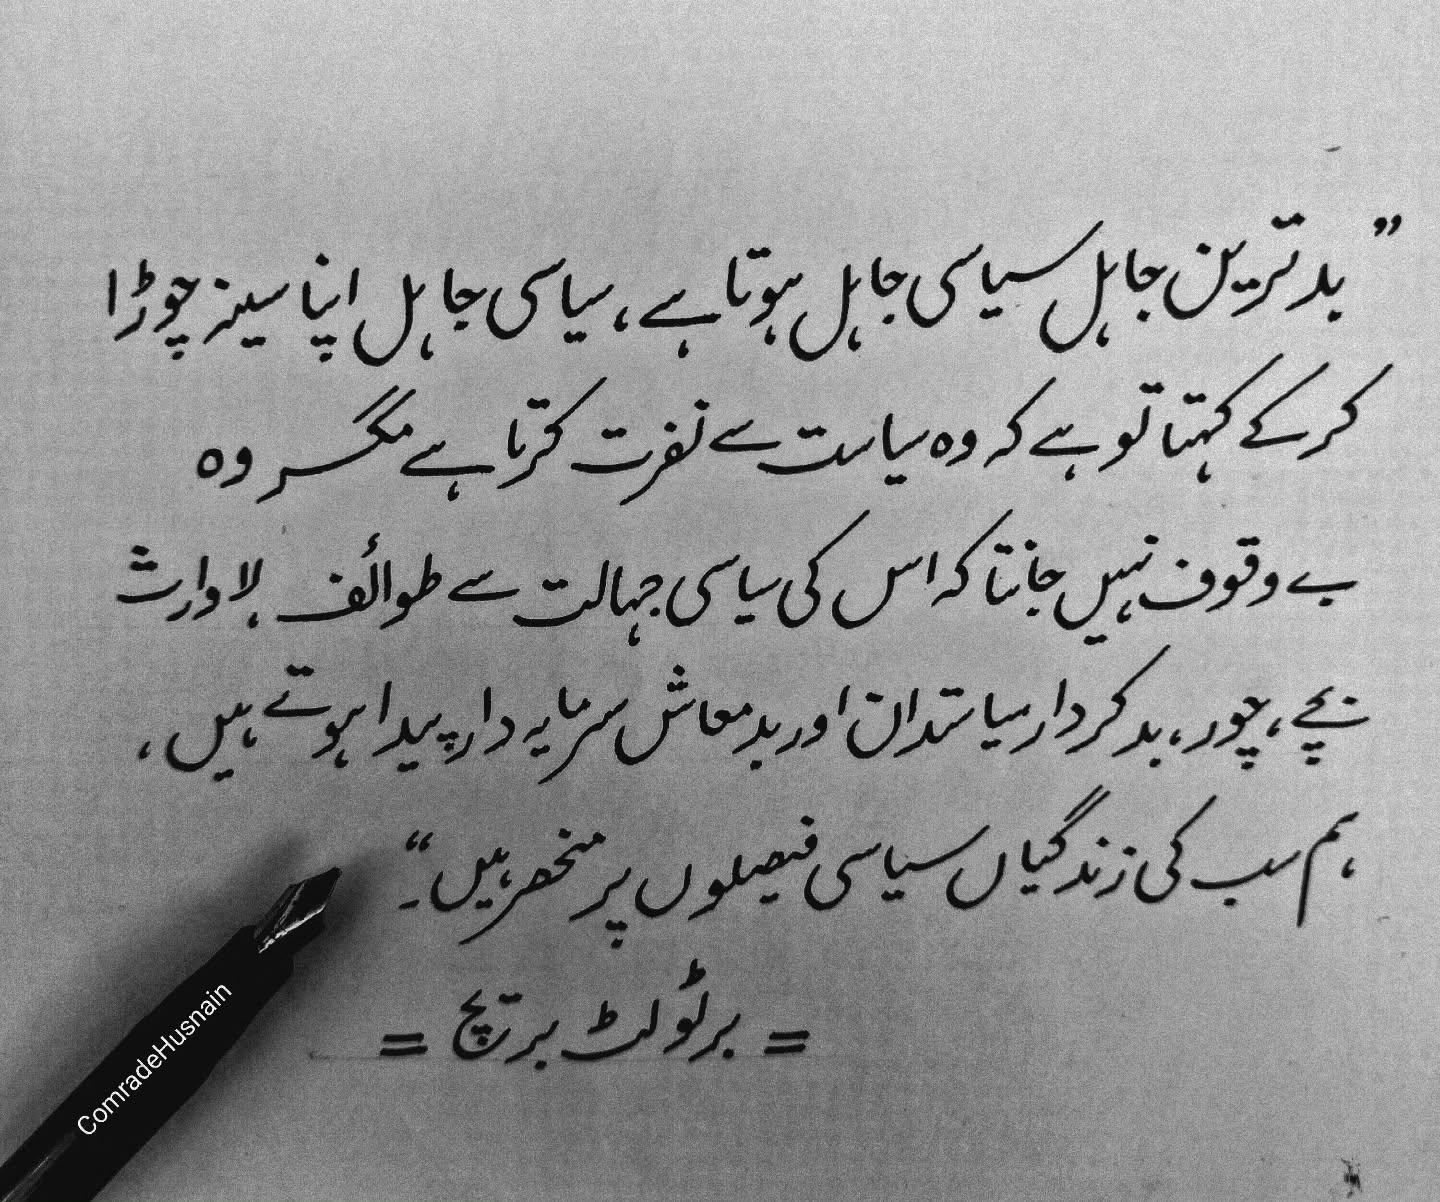 ”بدترین جاہل سیاسی جاہل ہوتا ہے، سیاسی جاہل اپنا سینہ چوڑا
کر کے کہتا تو ہے کہ وہ سیاست سے نفرت کرتا ہے مگر وہ
بے وقوف نہیں جانتا کہ اس کی سیاسی جہالت سے طوائف لاوارث
بچے، چور، بدکردار سیاستدان اور بدمعاش سرمایہ دار پیدا ہوتے ہیں،
ہم سب کی زندگیاں سیاسی فیصلوں پر منحصر ہیں۔“
= برٹولٹ بریخت =
ComradeHusnain